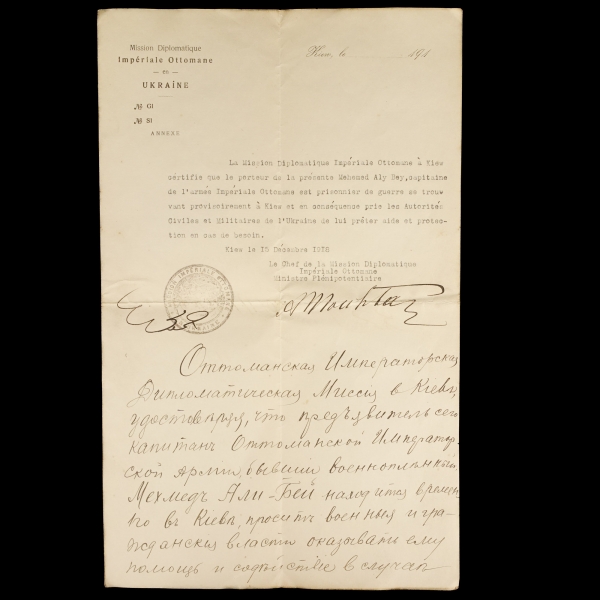 Mission Diplomatique
Impériale Ottomane
— en —
UKRAÏNE
№ Gl
№ Sl
ANNEXE
Kiew, le 191
La Mission Diplomatique Impériale Ottomane à Kiew
certifie que le porteur de la présente Mehemed Aly Bey, capitaine
de l'armée Impériale Ottomane est prisonnier de guerre se trouw
vant provisoirement à Kiew et en conséquence prie les Autorités
Civiles et Militaires de l'Ukraine de lui prêter aide et protec-
tion en cas de besoin.
Kiew le 15 Décembre 1918
Le Chef de la Mission Diplomatique
Impériale Ottomane
Ministre Plénipotentiaire
MISSION IMPÉRIALE OTTOMANE
UKRAINE
Оттоманская Императорская
Дипломатическая Миссія в Кіевѣ,
удостовѣряя, что предъявитель сего
капитанъ Оттоманской Император-
ской Арміи, бывшій военноплѣнный
Мехмедъ Али-Бей находится времен-
но въ Кіевѣ, проситъ военныя и гра-
жданскія власти оказывать ему
помощь и содѣйствіе в случаѣ